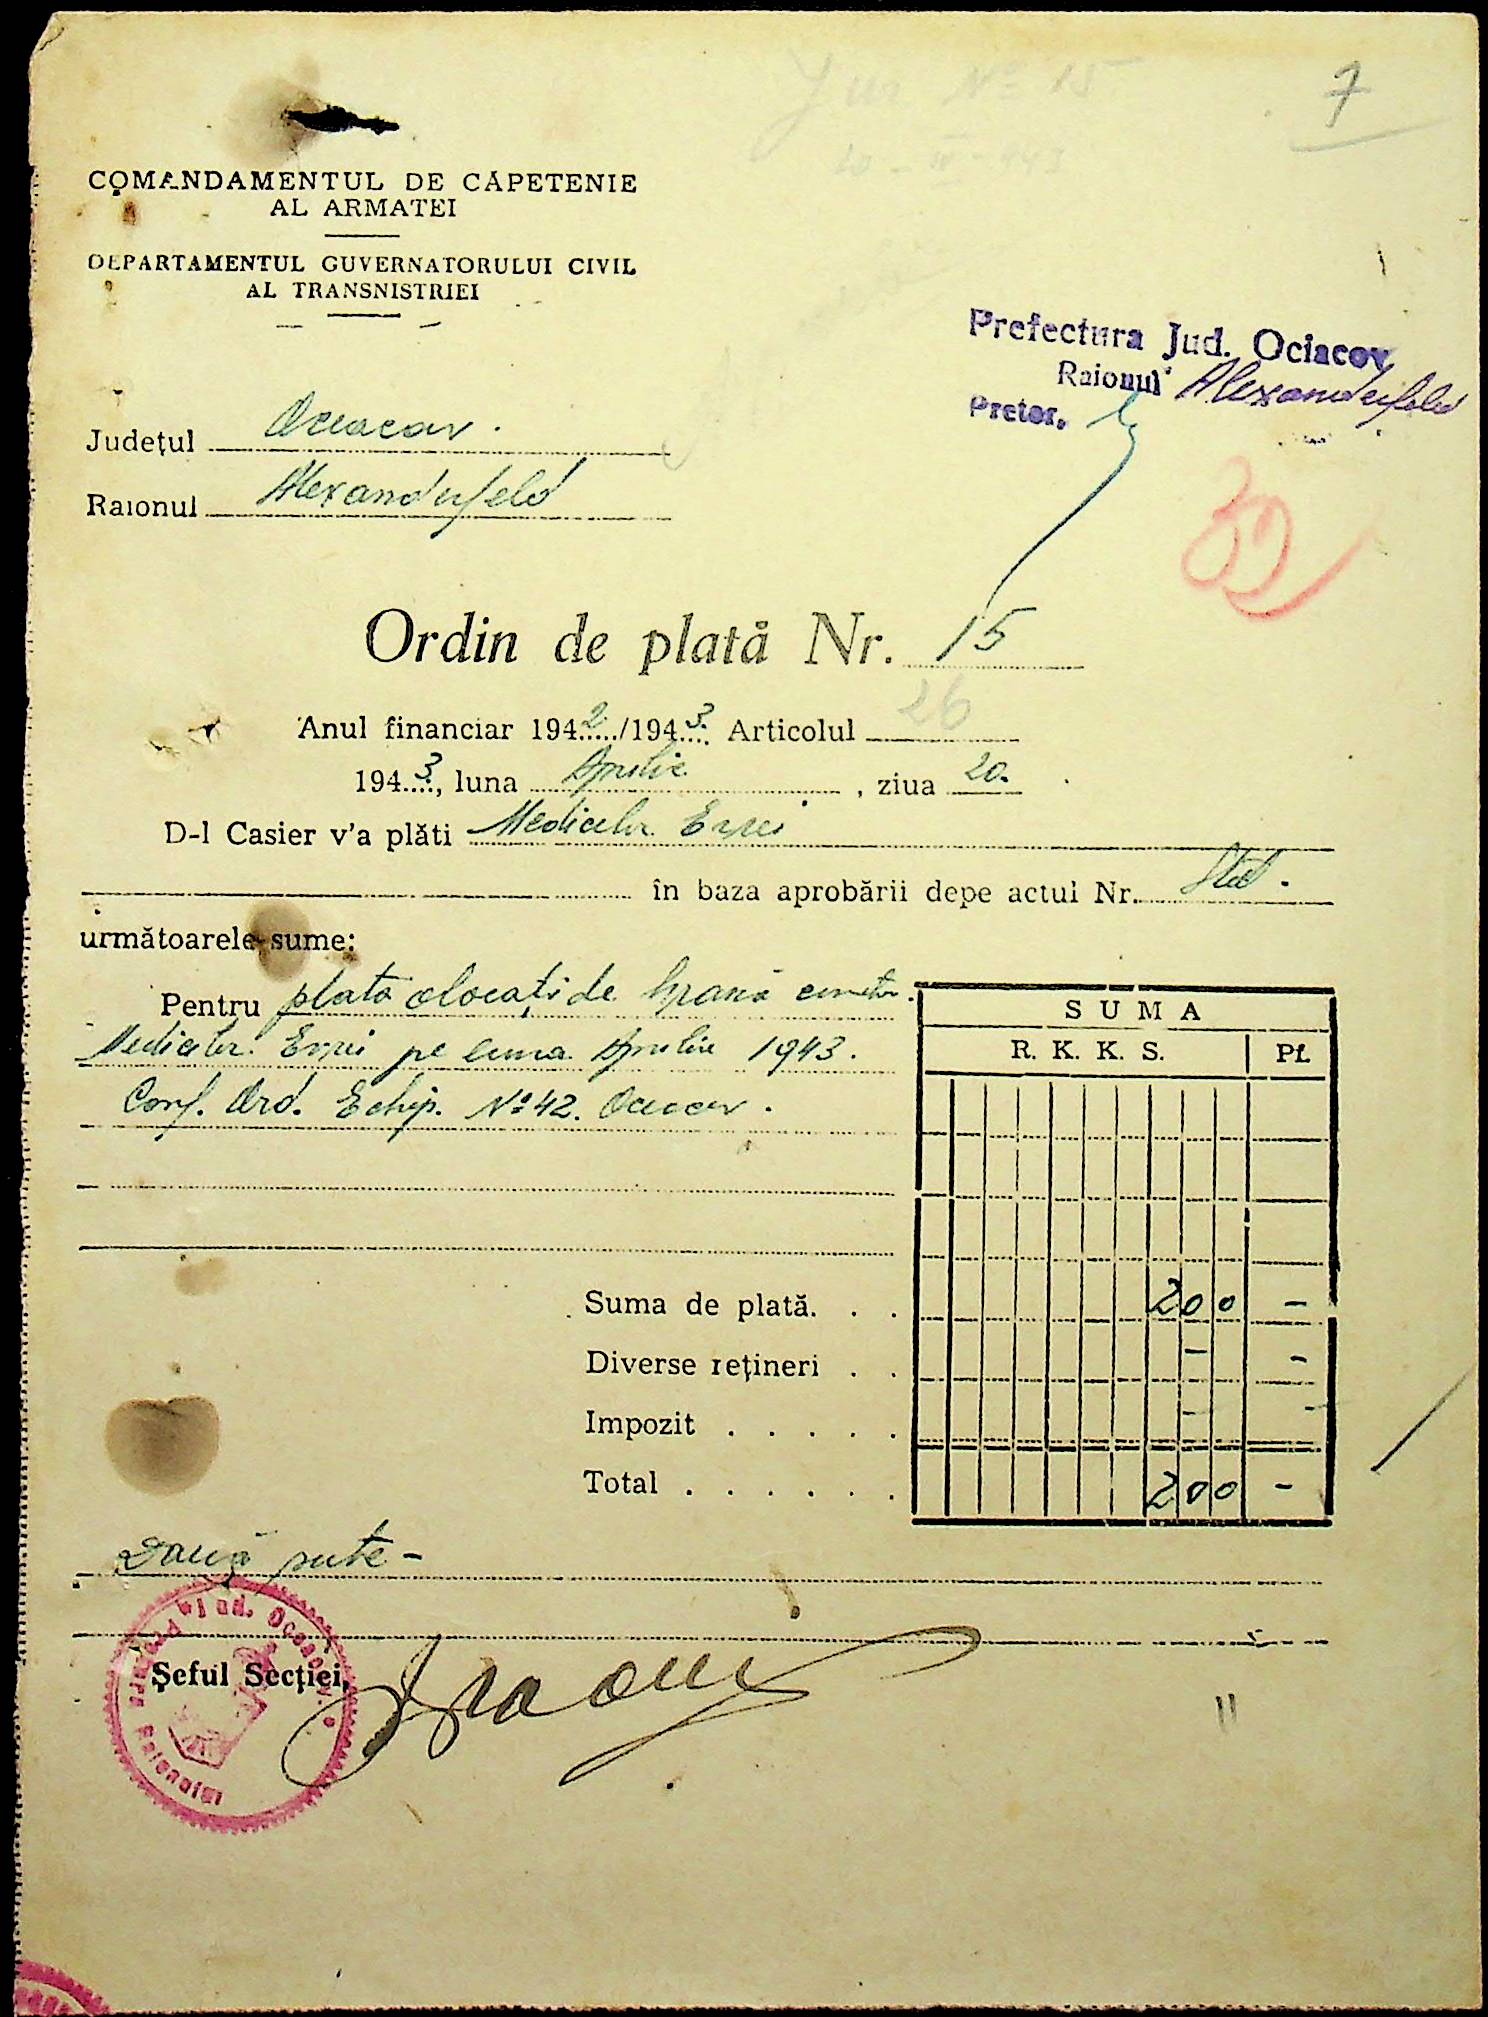 Jur № 15
20-IV-943
7
COMANDAMENTUL DE CAPETENIE
AL ARMATEI
DEPARTAMENTUL GUVERNATORULUI CIVIL
AL TRANSNISTRIEI
Prefectura Jud. Ociacov
Raionul Alexanderfeld
Pretor.
Județul Ociacov.
Raionul Alexanderfeld
Ordin de plată Nr. 15
Anul financiar 1942/1943. Articolul 26
1943, luna Aprilie, ziua 20.
D-l Casier v'a plăti Medicilor Evrei
în baza aprobării depe actul Nr. Stat.
următoarele sume:
Pentru plata alocați de hrană
Medicilor. Evrei pe luna Aprilie 1943.
Conf. Ord. Echip. №42. Ociacov.
SUMA
R. K. K. S. Pf.
Suma de plată. . . 200 -
Diverse rețineri . . - -
Impozit . . . . . - -
Total . . . . . . 200 -
Două sute -
Jud. Oceacov
Raionului
Șeful Secției,